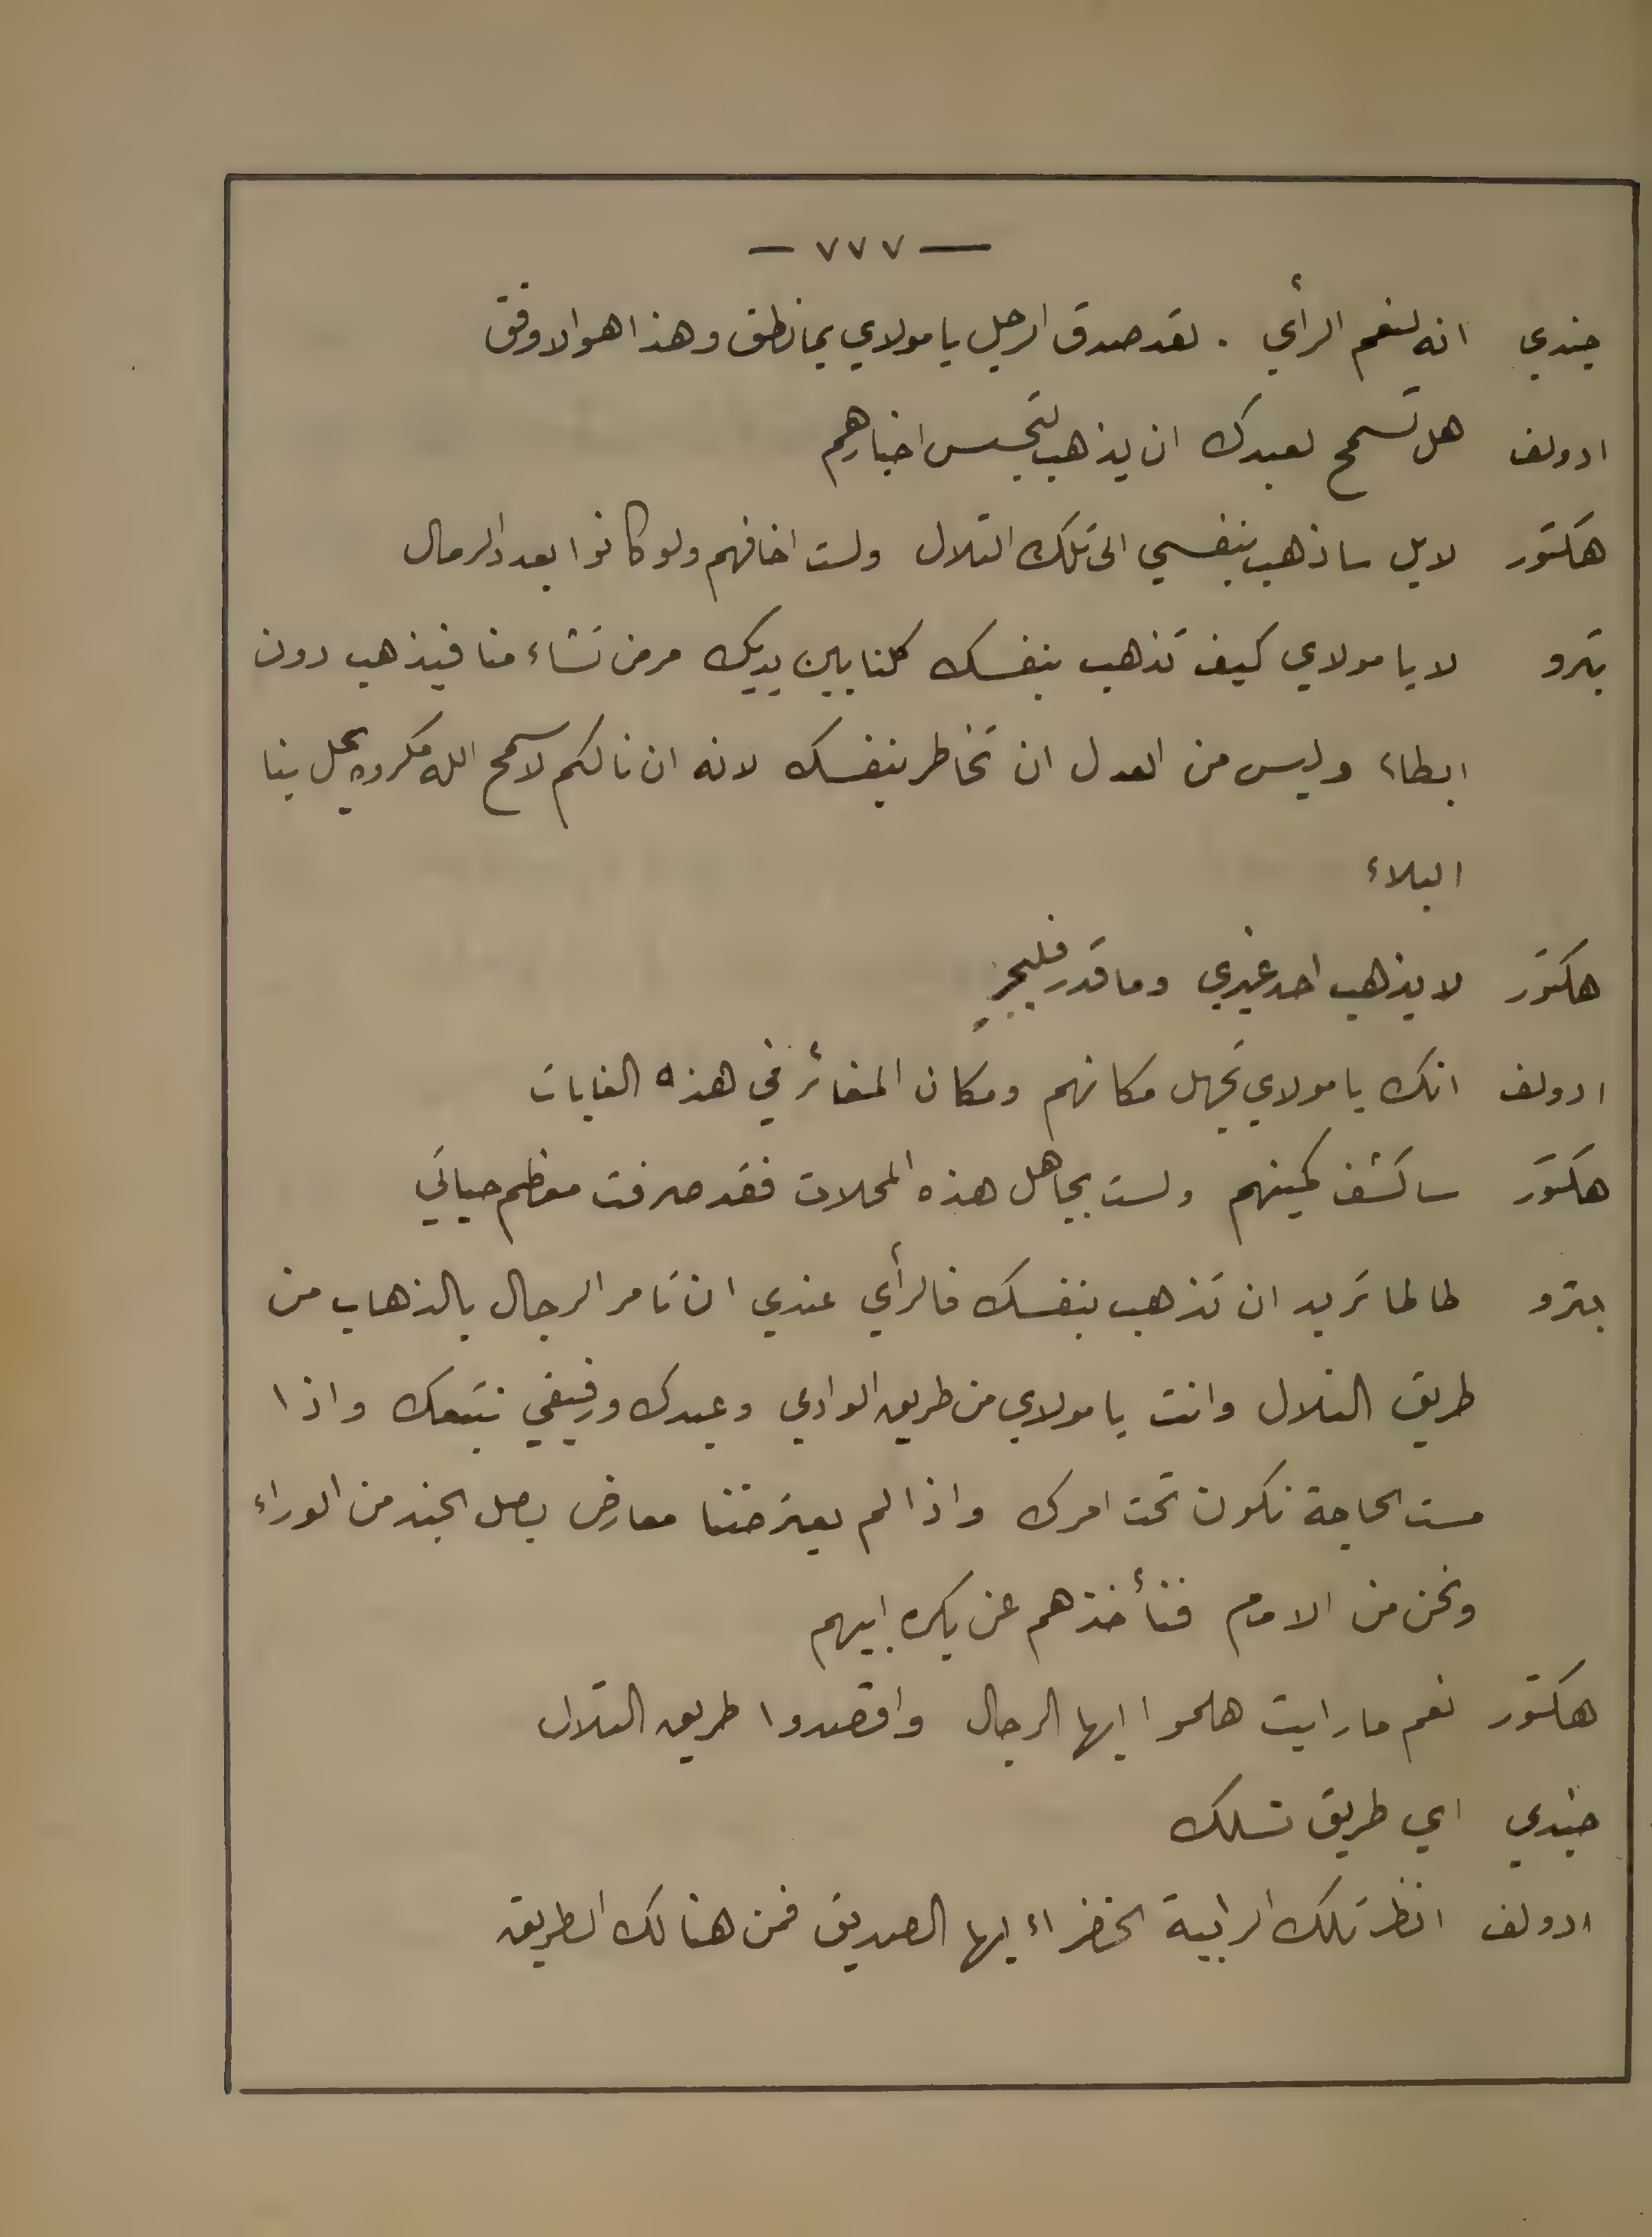 — ٧٧٧ —
جندي انه لنعم الرأي . لقد صدق الرجل يا مولاي بما نطق وهذا هو الاوفق
ادولف هل تسمح لعبدك ان يذهب لتجسس اخبارهم
هكتور لا بل ساذهب بنفسي الى تلك التلال ولست اخافهم ولو كانوا بعدد الرمال
بترو لا يا مولاي كيف تذهب بنفسك كلنا بين يديك مر من تشاء منا فيذهب دون
ابطاء وليس من العدل ان تخاطر بنفسك لانه ان نالكم لا سمح الله مكروه يحل بنا
البلاء
هكتور لا يذهب احد غيري وما قدر فليجرِ
ادولف انك يا مولاي تجهل مكانهم ومكان المغائر في هذه الغابات
هكتور ساكشف كمينهم ولست بجاهل هذه المحلات فقد صرفت معظم حياتي
بترو طالما تريد ان تذهب بنفسك فالرأي عندي ان تامر الرجال بالذهاب من
طريق التلال وانت يا مولاي من طريق الوادي وعبدك ورفيقي نتبعك واذا
مست الحاجة نكون تحت امرك واذا لم يعترضنا معارض يصل الجند من الوراء
ونحن من الامام فنأخذهم عن بكرة ابيهم
هكتور نعم ما رايت هلموا ايها الرجال واقصدوا طريق التلال
جندي اي طريق نسلك
ادولف انظر تلك الرابية الخضراء ايها الصديق فمن هنالك الطريق